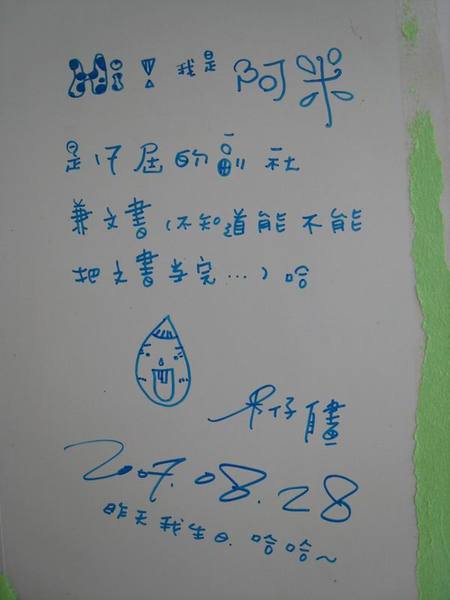 Hi! 我是 阿米
是17屆的副社
兼文書(不知道能不能
把文書当完...)哈
米仔
2007.08.28
昨天我生日.哈哈~